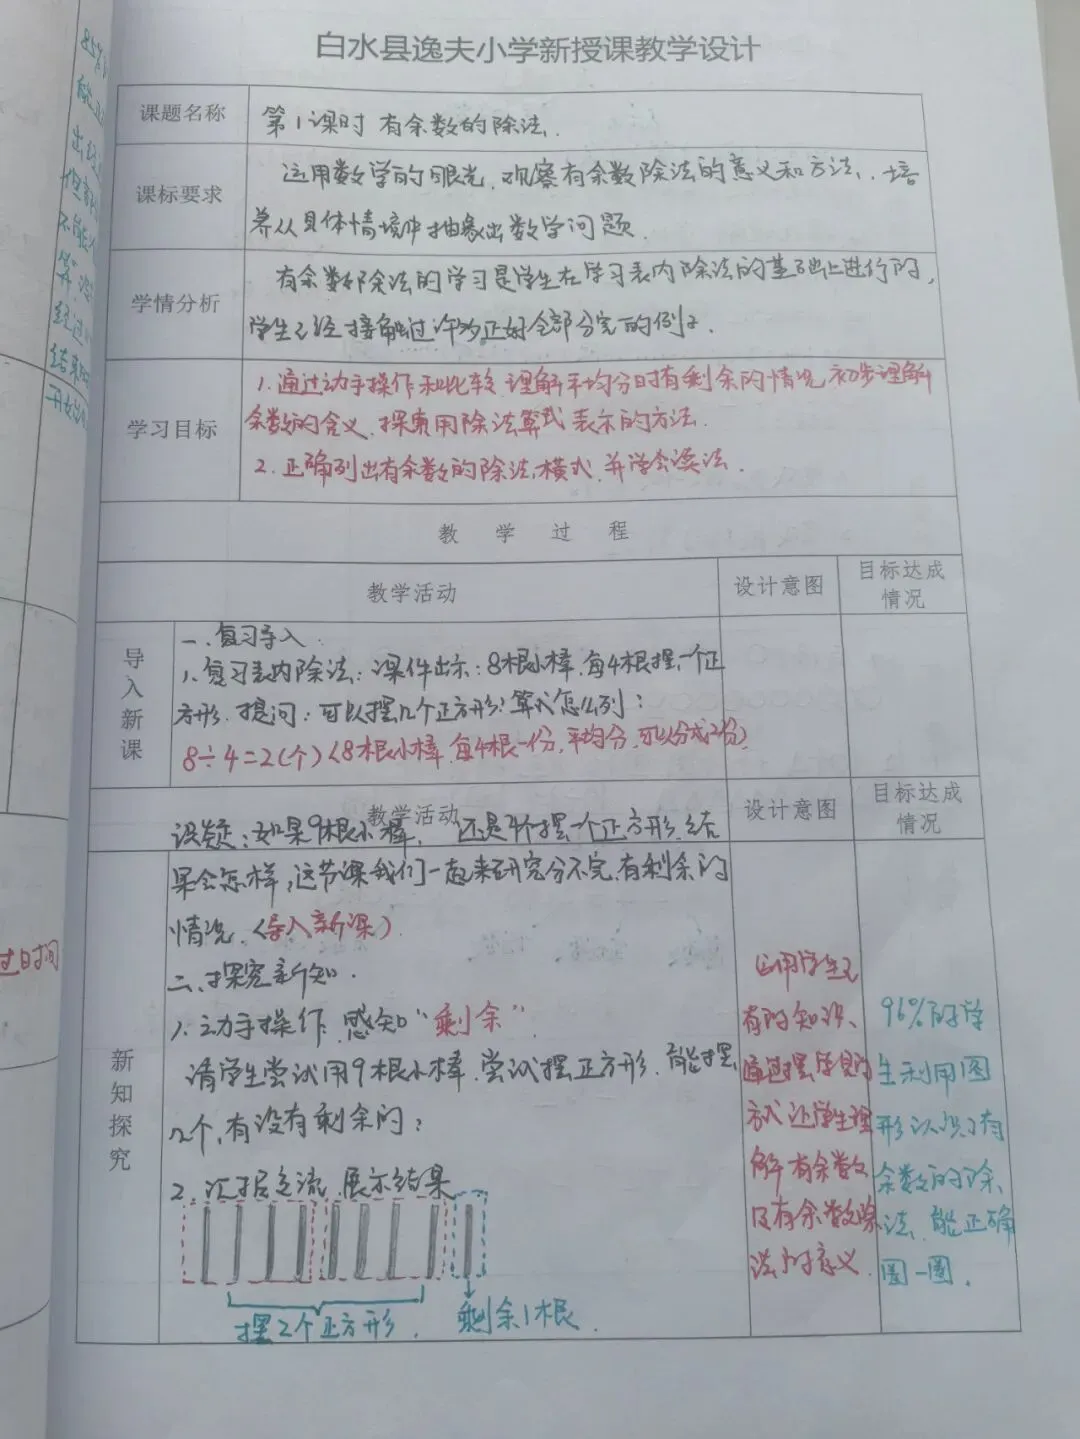 白水县逸夫小学新授课教学设计
课题名称
第1课时 有余数的除法.
课标要求
运用数学的眼光,观察有余数除法的意义和方法,培
养从具体情境中抽象出数学问题.
学情分析
有余数除法的学习是学生在学习表内除法的基础上进行的,
学生已经接触过许多正好全部分完的例子.
学习目标
1.通过动手操作和比较 理解平均分时有剩余的情况 初步理解
余数的含义,探索用除法算式表示的方法.
2.正确列出有余数的除法横式,并学会读法.
教 学 过 程
教学活动
设计意图
目标达成
情况
导入新课
一、复习导入.
1、复习表内除法:课件出示:8根小棒,每4根摆一个正
方形.提问:可以摆几个正方形?算式怎么列:
8÷4=2(个)(8根小棒,每4根一份,平均分,可以分成2份)
教学活动
设计意图
目标达成
情况
设疑:如果9根小棒, 还是4个摆一个正方形,结
果会怎样,这节课我们一起来研究分不完,有剩余的
情况.(导入新课)
新知探究
二、探究新知.
1.动手操作,感知“剩余”
请学生尝试用9根小棒,尝试摆正方形,能摆
几个,有没有剩余的?
2.汇报交流,展示结果
摆2个正方形. 剩余1根.
有的知识、
通过摆学具的
方式让学生理
解有余数
及有余数除
法的意义.
96%的学
生利用图
形认识了有
余数的除
法,能正确
圈一圈.
过时间